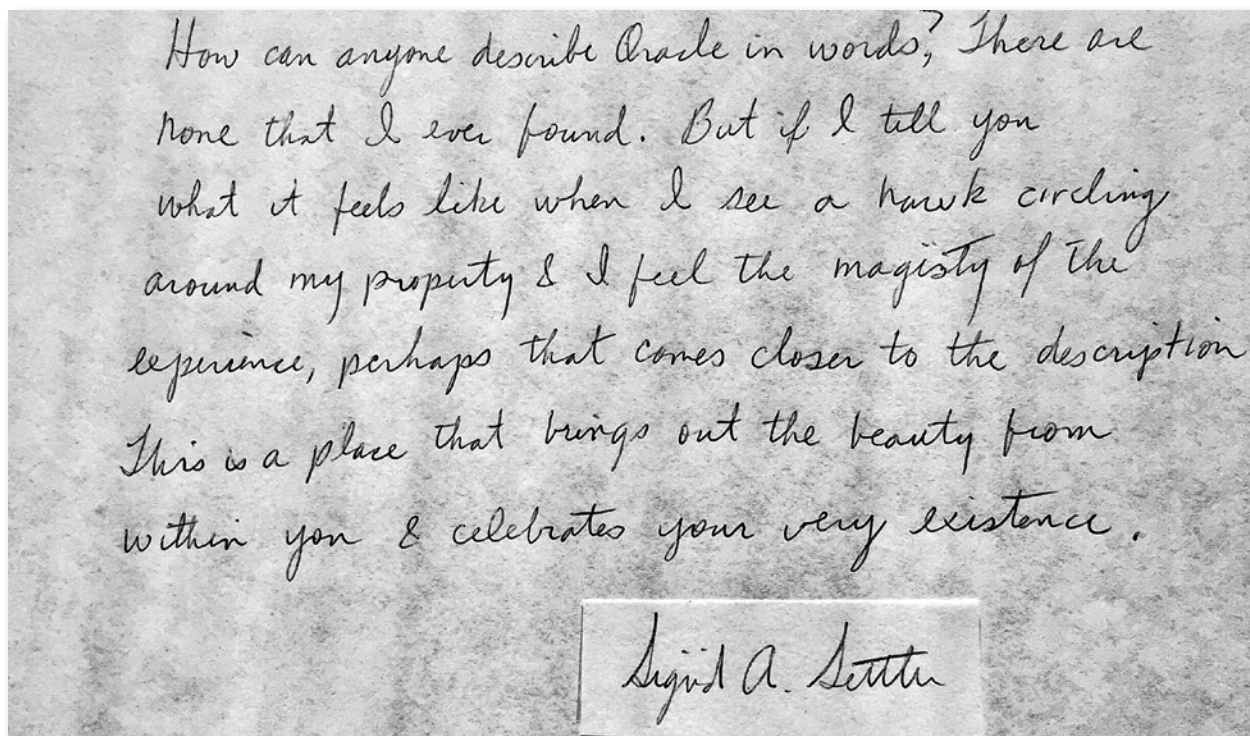 How can anyone describe Oracle in words? There are
none that I ever found. But if I tell you
what it feels like when I see a hawk circling
around my property & I feel the magisty of the
experience, perhaps that comes closer to the description
This is a place that brings out the beauty from
within you & celebrates your very existence.
Sigrid A.